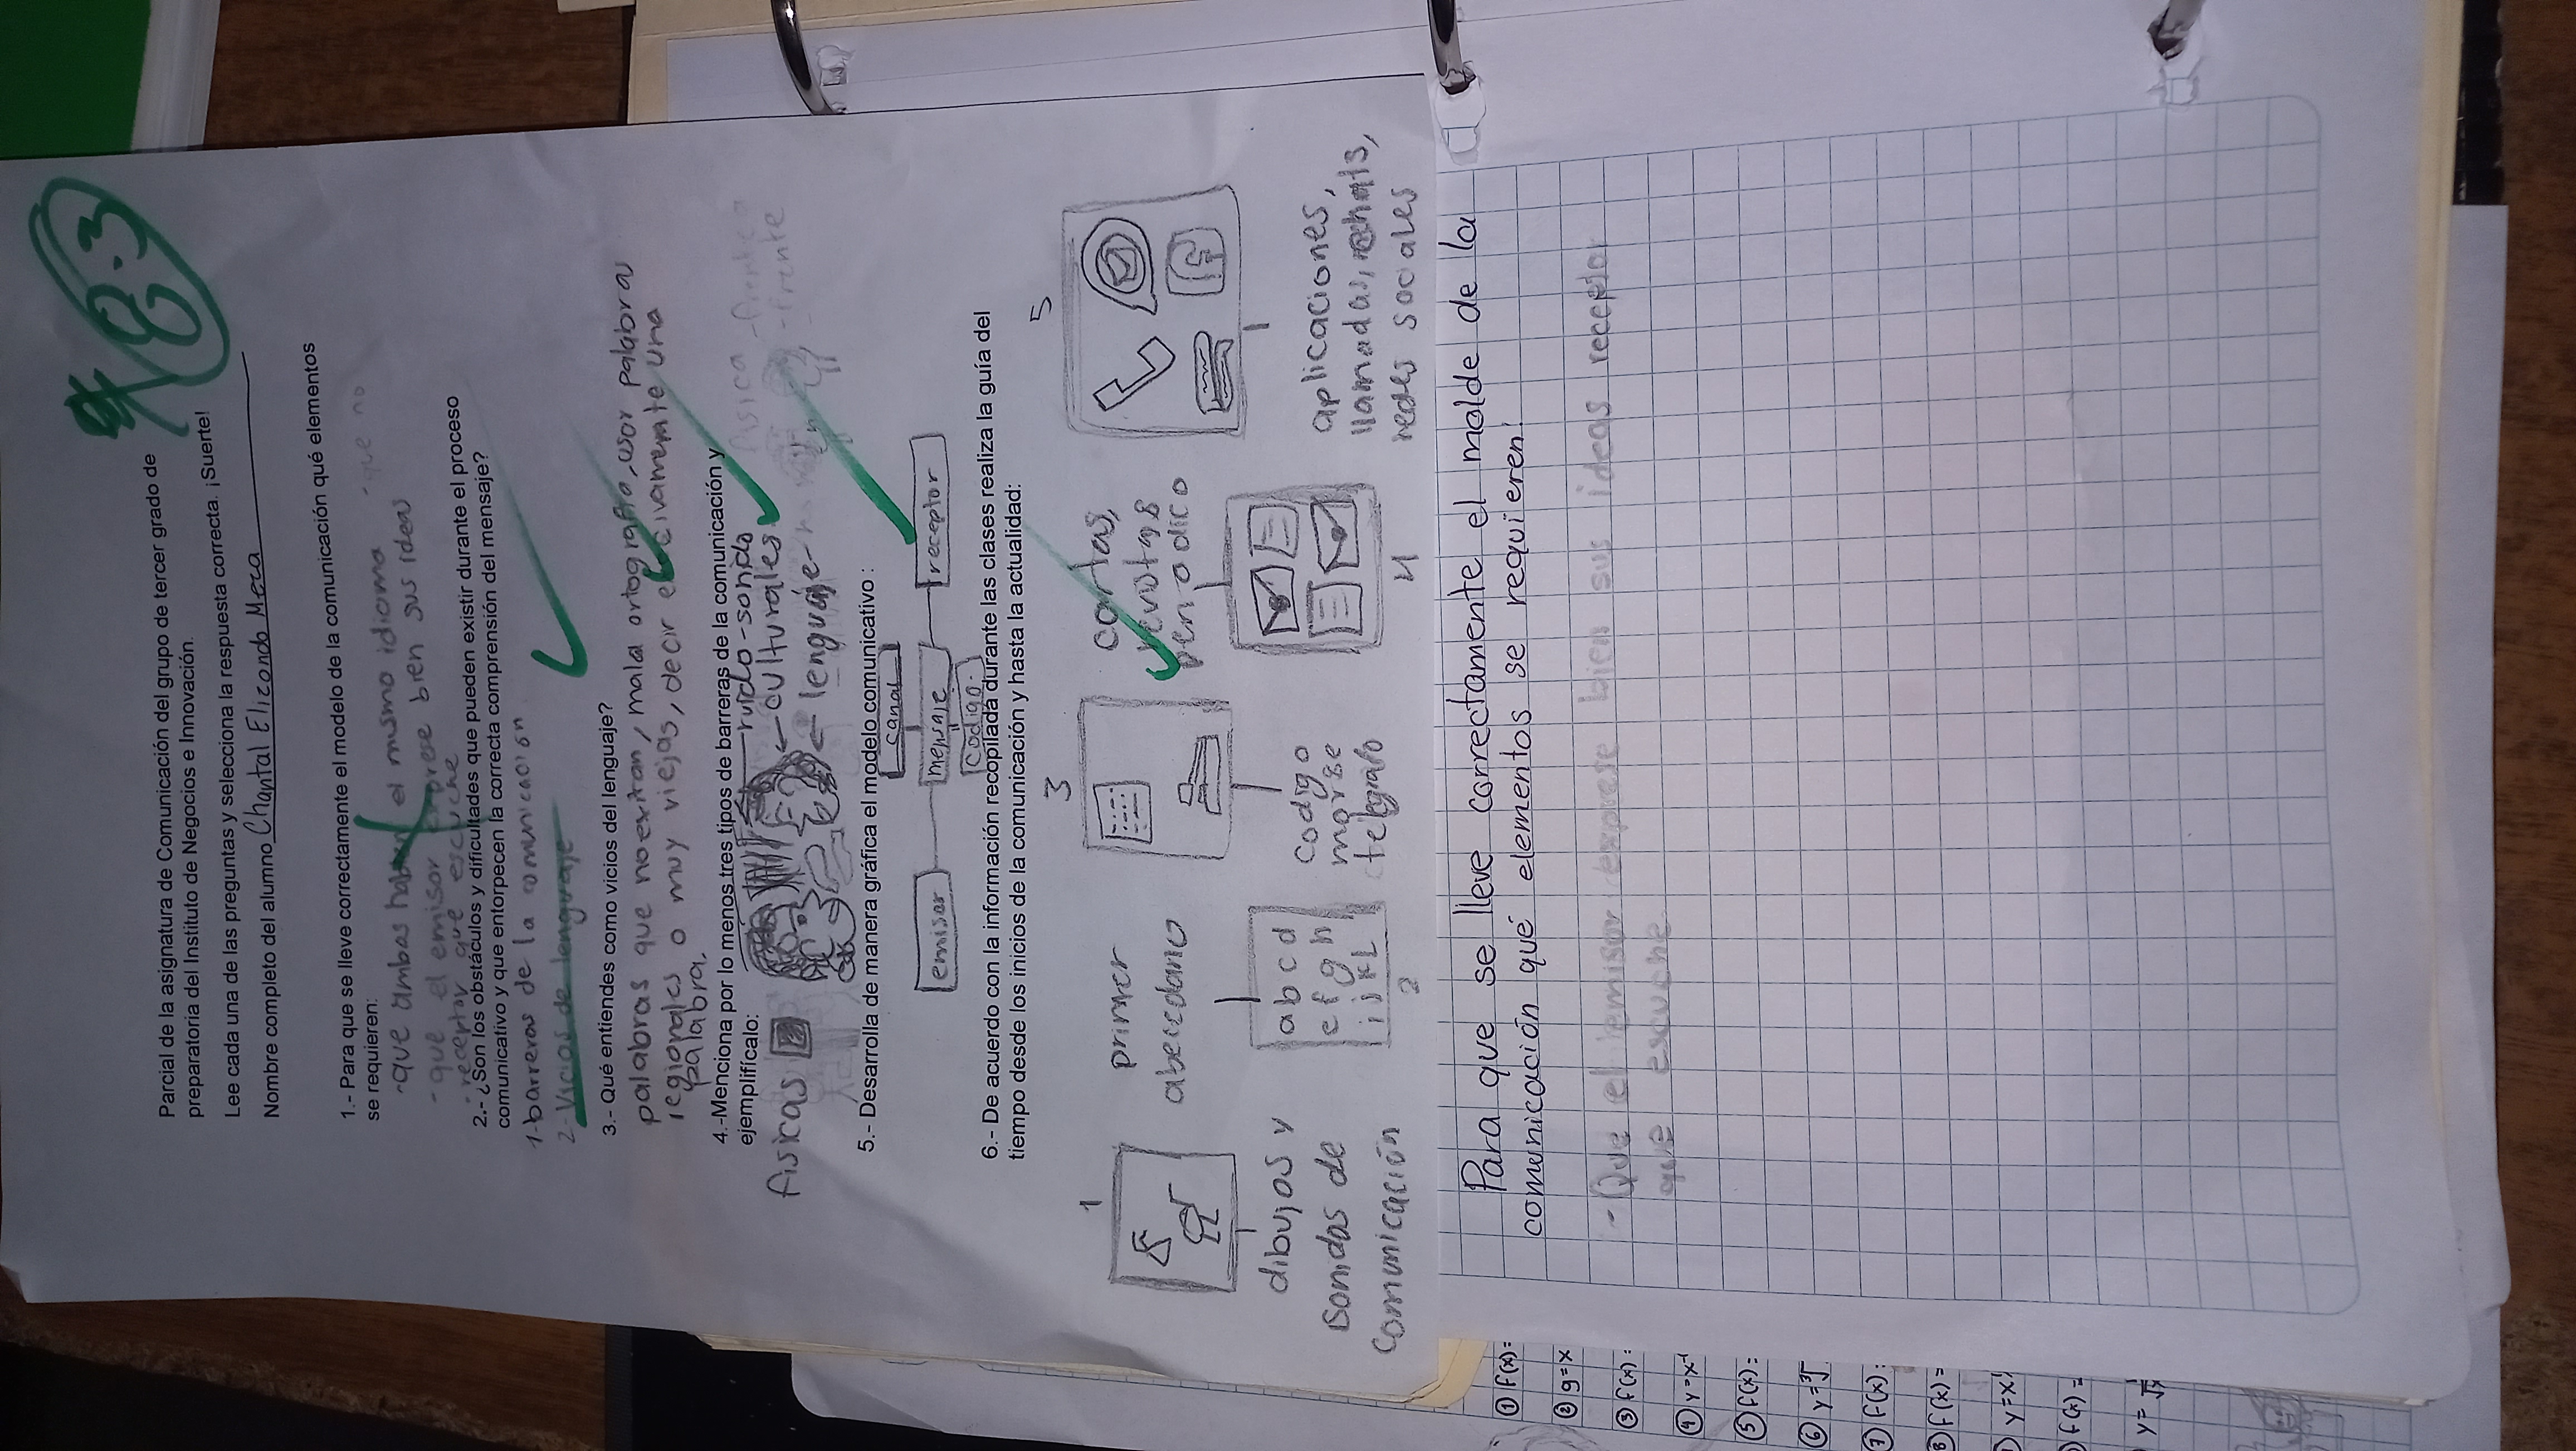 8.3
Parcial de la asignatura de Comunicación del grupo de tercer grado de
preparatoria del Instituto de Negocios e Innovación.
Lee cada una de las preguntas y selecciona la respuesta correcta. ¡Suerte!
Nombre completo del alumno Chantal Elizondo Meza
1.- Para que se lleve correctamente el modelo de la comunicación qué elementos
se requieren:
-que ambas hablen el mismo idioma -que no
- que el emisor exprese bien sus ideas
receptor que escuche
2.- ¿Son los obstáculos y dificultades que pueden existir durante el proceso
comunicativo y que entorpecen la correcta comprensión del mensaje?
1-barreras de la comunicación
2-Vicios de lenguaje
3.- Qué entiendes como vicios del lenguaje?
palabras que no existan, mala ortografía, usar palabra
regionales o muy viejas, decir una
palabra.
4.-Menciona por lo menos tres tipos de barreras de la comunicación y
ejemplifícalo:
fisicas
ruido-sonido
culturales
lenguaje
5.- Desarrolla de manera gráfica el modelo comunicativo :
canal
emisor mensaje receptor
codigo.
6.- De acuerdo con la información recopilada durante las clases realiza la guía del
tiempo desde los inicios de la comunicación y hasta la actualidad:
1
dibujos y
sonidos de
comunicación
primer
abecedario
a b c d
e f g h
i j k L
2
3
codigo
morse
telegrafo
cartas,
periodico
4
5
aplicaciones,
llamadas,
redes sociales
Para que se lleve correctamente el molde de la
comunicación qué elementos se requieren:
- Que el emisor exprese bien sus ideas receptor
que escuche
① f(x)=
② g=x
③ f(x):
④ y=x⁻¹
⑤ f(x):
⑥ y=³√
⑦ f(x):
⑧ f(x)=
y=x
f(x)=